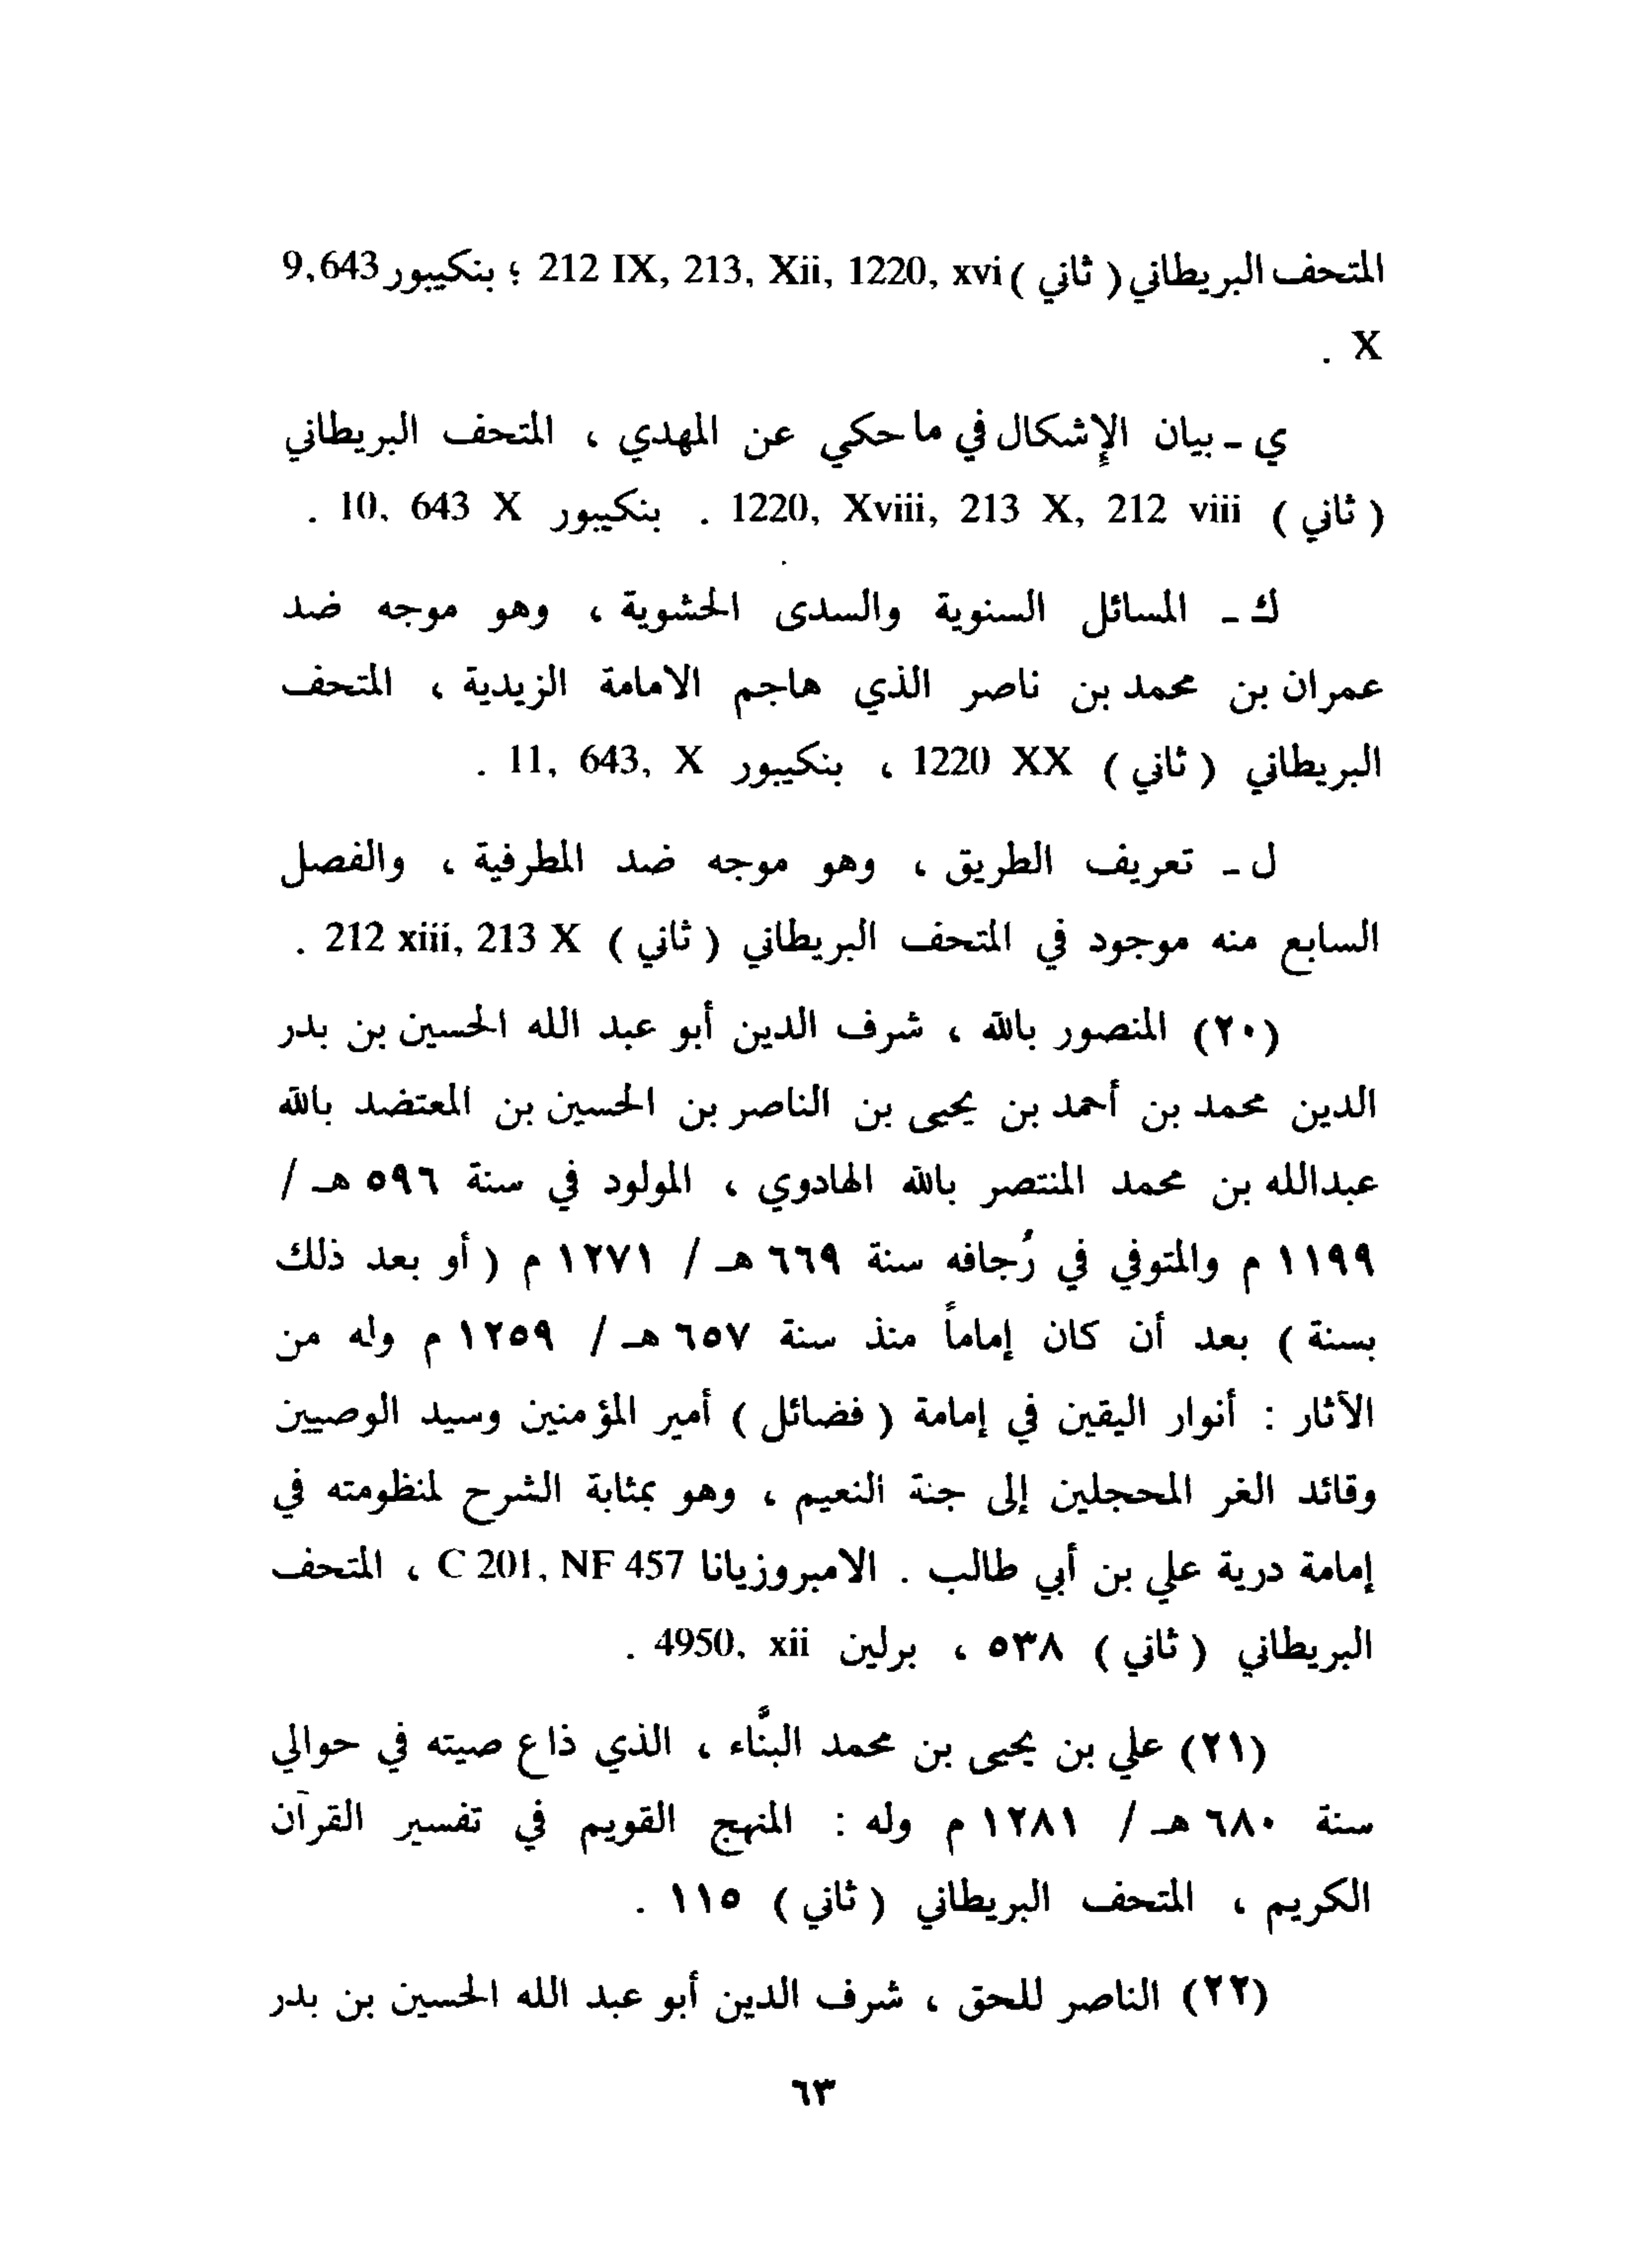 المتحف البريطاني ( ثاني ) 212 IX, 213, Xii, 1220, xvi ؛ بنكيبور 9,643
X .
ي ـ بيان الإشكال في ما حكي عن المهدي ، المتحف البريطاني
( ثاني ) 1220, Xviii, 213 X, 212 viii . بنكيبور 10, 643 X .
ك ـ المسائل السنوية والسدى الحشوية ، وهو موجه ضد
عمران بن محمد بن ناصر الذي هاجم الامامة الزيدية ، المتحف
البريطاني ( ثاني ) 1220 XX ، بنكيبور 11, 643, X .
ل ـ تعريف الطريق ، وهو موجه ضد المطرفية ، والفصل
السابع منه موجود في المتحف البريطاني ( ثاني ) 212 xiii, 213 X .
(٢٠) المنصور بالله ، شرف الدين أبو عبد الله الحسين بن بدر
الدين محمد بن أحمد بن يحيى بن الناصر بن الحسين بن المعتضد بالله
عبدالله بن محمد المنتصر بالله الهادوي ، المولود في سنة ٥٩٦ هـ /
١١٩٩ م والمتوفي في رُجافه سنة ٦٦٩ هـ / ١٢٧١ م ( أو بعد ذلك
بسنة ) بعد أن كان إماماً منذ سنة ٦٥٧ هـ / ١٢٥٩ م وله من
الآثار : أنوار اليقين في إمامة ( فضائل ) أمير المؤمنين وسيد الوصيين
وقائد الغر المحجلين إلى جنة النعيم ، وهو بمثابة الشرح لمنظومته في
إمامة درية علي بن أبي طالب . الامبروزيانا C 201, NF 457 ، المتحف
البريطاني ( ثاني ) ٥٣٨ ، برلين 4950, xii .
(٢١) علي بن يحيى بن محمد البنَّاء ، الذي ذاع صيته في حوالي
سنة ٦٨٠ هـ / ١٢٨١ م وله : المنهج القويم في تفسير القرآن
الكريم ، المتحف البريطاني ( ثاني ) ١١٥ .
(٢٢) الناصر للحق ، شرف الدين أبو عبد الله الحسين بن بدر
٦٣